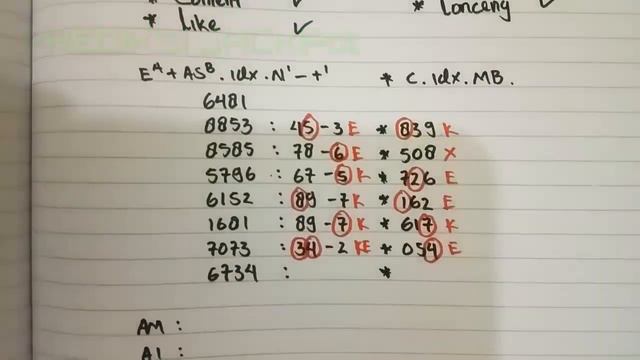 * Comen ✓ * Lonceng ✓
* Like ✓
E^A + AS^B . Idx . N' - +' * C . Idx . MB .
6481
8853 : 45 - 3 E * 839 K
8585 : 78 - 6 E * 508 X
5796 : 67 - 5 K * 726 E
6152 : 89 - 7 K * 162 E
1681 : 89 - 7 K * 617 K
7073 : 34 - 2 KE * 054 E
6734 : *
AM :
AI :